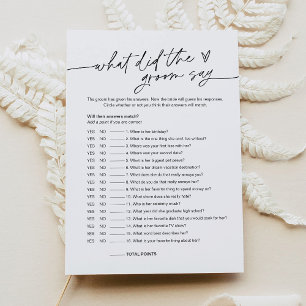 what did the
groom say
The groom has given his answers. Now the bride will guess his responses.
Circle whether or not you think their answers will match.
Will their answers match?
Add a point if you are correct
YES NO 1. When is her birthday?
YES NO 2. What is the one thing she cannot live without?
YES NO 3. Where was your first kiss with her?
YES NO 4. Where was your second date?
YES NO 5. What is her biggest pet peeve?
YES NO 6. What is her dream vacation destination?
YES NO 7. What does she do that really annoys you?
YES NO 8. What do you do that really annoys her?
YES NO 9. What is her favorite thing to spend money on?
YES NO 10. What chore does she really hate?
YES NO 11. Who is her celebrity crush?
YES NO 12. What year did she graduate high school?
YES NO 13. What is her favorite dish that you would cook for her?
YES NO 14. What is her favorite TV show?
YES NO 15. What word best describes her?
YES NO 16. What is your favorite thing about her?
TOTAL POINTS